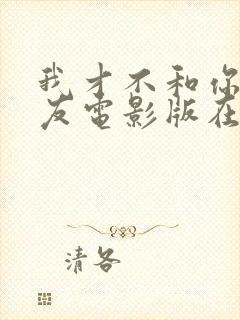 我才不和你
友电影版在
清各